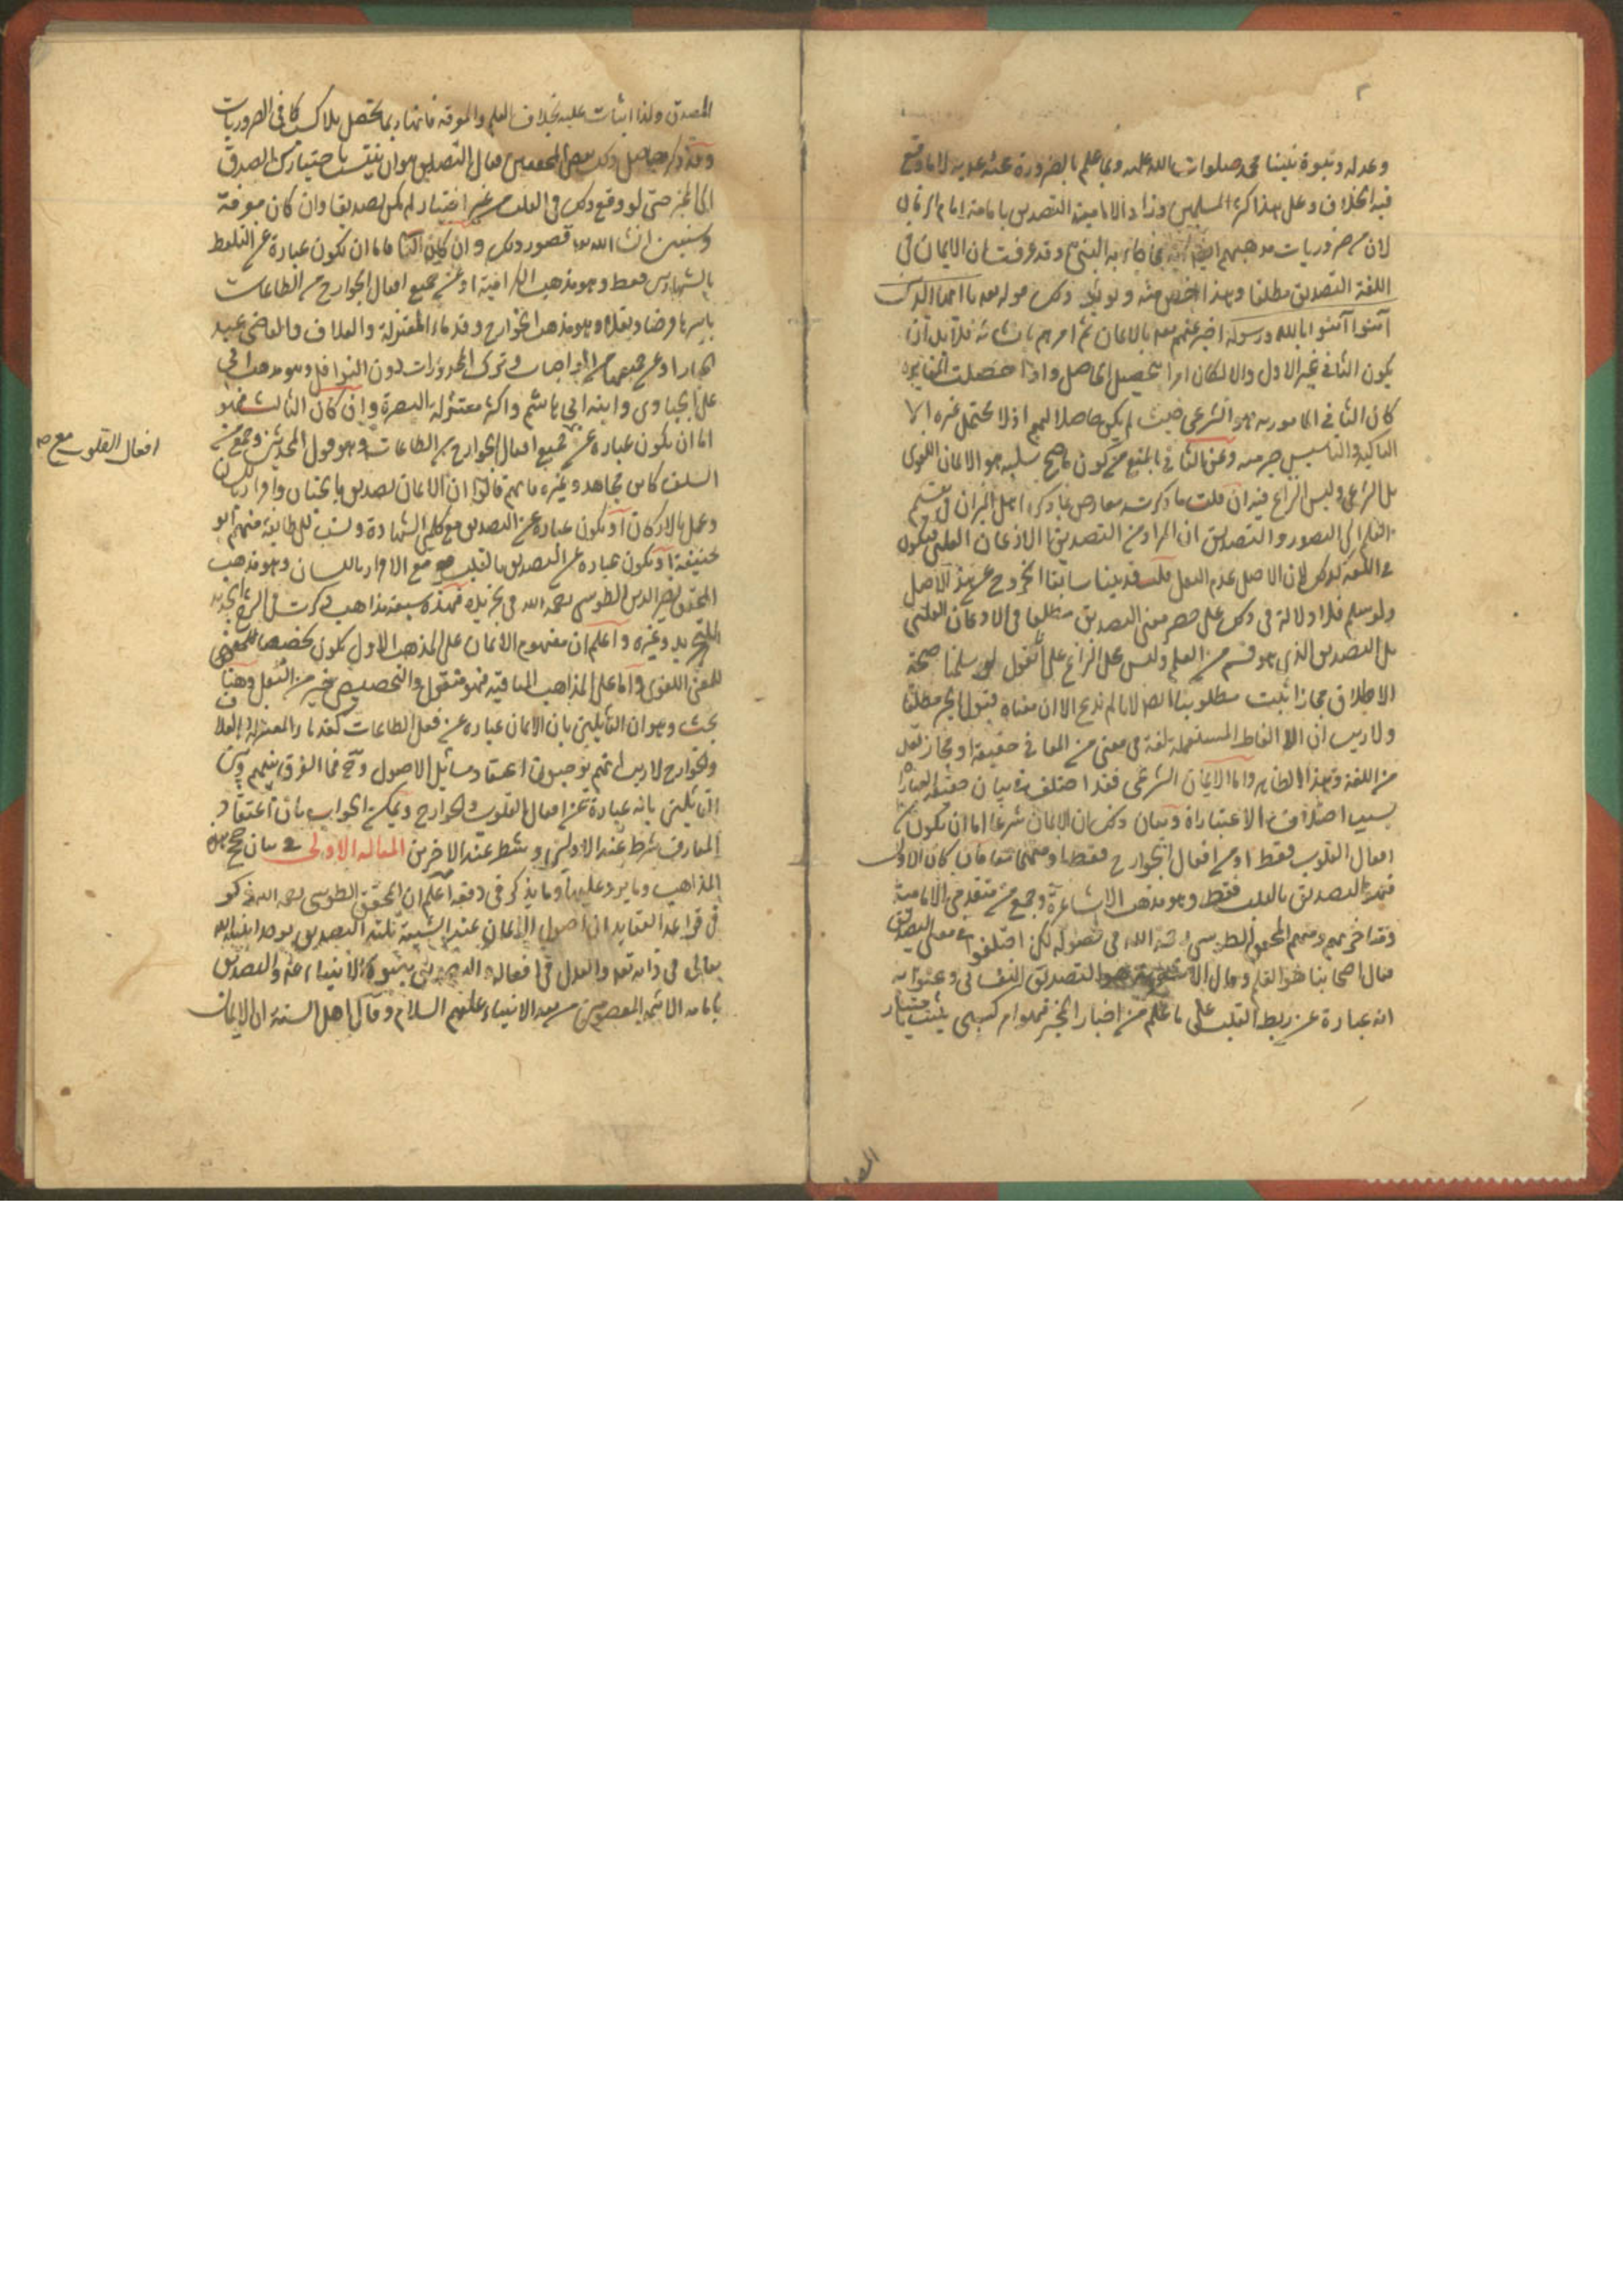 ٢
وعدله ونبوة نبينا محمد صلوات الله عليه وبما علم بالضرورة مجيئه به لا ما وقع
فيه الخلاف وعلى هذا اكثر المسلمين وزاد الامامية التصديق بامامة امام الزمان
لان من ضروريات مذهبهم ايضا انه مما جاء به النبي وقد عرفت ان الايمان في
اللغة التصديق مطلقا وهذا اخص منه ويؤيد ذلك قوله تعالى يا ايها الذين
آمنوا آمنوا بالله ورسوله اخبر عنهم تعالى بالايمان ثم امرهم بانشائه فلا بد ان
يكون الثاني غير الاول والا لكان امرا بتحصيل الحاصل واذا حصلت المغايرة
كان الثاني المامور به هو الشرعي حيث لم يكن حاصلا لهم اذ لا محتمل غيره الا
التاكيد والتاسيس خير منه وعن الثاني بالمنع من كون ما صح سلبه هو الايمان اللغوي
بل الشرعي وليس النزاع فيه ان قلت ما ذكرته معارض بما ذكره اهل الميزان في تقسيم
العلم الى التصور والتصديق ان المراد من التصديق الاذعان القلبي فيكون
في اللغة كذلك لان الاصل عدم النقل قلت قد بينا سابقا الخروج عن هذا الاصل
ولو سلم فلا دلالة في ذلك على حصر معنى التصديق مطلقا في الاذعان القلبي
بل التصديق الذي هو قسم من العلم وليس محل النزاع على انا نقول لو سلمنا صحة
الاطلاق مجازا ثبت مطلوبنا ايضا لانا لم ندع الا ان معناه قبول الخبر مطلقا
ولا ريب ان الالفاظ المستعملة لغة في معنى من المعاني حقيقة او مجازا تعد
من اللغة وهذا ظاهر واما الايمان الشرعي فقد اختلفت في بيان حقيقته العبارات
بسبب اختلاف الاعتبارات وبيان ذلك ان الايمان شرعا اما ان يكون من
افعال القلوب فقط او من افعال الجوارح فقط او منهما معا فان كان الاول
فهو التصديق بالقلب فقط وهو مذهب الاشاعرة وجمع من متقدمي الامامية
ومتاخريهم ومنهم المحقق الطوسي رحمه الله في فصوله لكن اختلفوا في معنى التصديق
فقال اصحابنا هو العلم وقال الاشعرية هو التصديق النفساني وعنوا به
انه عبارة عن ربط القلب على ما علم من اخبار المخبر فهو امر كسبي يثبت باختيار
المصدق ولذا يثاب عليه بخلاف العلم والمعرفة فانها ربما تحصل بلا كسب كما في الضروريات
وقد ذكر حاصل ذلك بعض المحققين فقال التصديق هو ان تنسب باختيارك الصدق
الى المخبر حتى لو وقع ذلك في القلب من غير اختيار لم يكن تصديقا وان كان معرفة
وسنبين ان شاء الله تعالى قصور ذلك وان كان الثاني فاما ان يكون عبارة عن التلفظ
بالشهادتين فقط وهو مذهب الكرامية او عن جميع افعال الجوارح من الطاعات
باسرها فرضا ونفلا وهو مذهب الخوارج وقدماء المعتزلة والعلاف والقاضي عبد
الجبار او عن جميعها من الواجبات وترك المحذورات دون النوافل وهو مذهب ابي
علي الجبائي وابنه ابي هاشم واكثر معتزلة البصرة وان كان الثالث فهو
اما ان يكون عبارة عن جميع افعال الجوارح من الطاعات وهو قول المحدثين وجمع من
السلف كابن مجاهد وغيره فانهم قالوا ان الايمان تصديق بالجنان واقرار باللسان
وعمل بالاركان او يكون عبارة عن التصديق مع كلمتي الشهادة ونسب الى طائفة منهم ابو
حنيفة او يكون عبارة عن التصديق بالقلب مع الاقرار باللسان وهو مذهب
المحقق نصير الدين الطوسي رحمه الله في تجريده فهذه سبعة مذاهب ذكرت في الشرح الجديد
للتجريد وغيره واعلم ان مفهوم الايمان على المذهب الاول يكون تخصيصا
للمعنى اللغوي واما على المذاهب الباقية فهو منقول والتخصيص خير من النقل وهنا
بحث وهو ان القائلين بان الايمان عبارة عن فعل الطاعات كقدماء المعتزلة والعلاف
والخوارج لا ريب انهم يوجبون اعتقاد مسائل الاصول وح فما الفرق بينهم وبين
القائلين بانه عبارة عن افعال القلوب والجوارح ويمكن الجواب بان اعتقاد
المعارف شرط عند الاولين وشطر عند الاخرين المقالة الاولى في بيان حجج هذه
المذاهب وما يرد عليها وما يذكر في دفعه اعلم ان المحقق الطوسي رحمه الله ذكر
في قواعد العقايد ان اصول الايمان عند الشيعة ثلثة التصديق بوحدانية الله
تعالى في ذاته تعالى والعدل في افعاله والتصديق بنبوة الانبياء عم والتصديق
بامامة الائمة المعصومين من بعد الانبياء عليهم السلام وقال اهل السنة ان الايمان
افعال القلوب مع صح